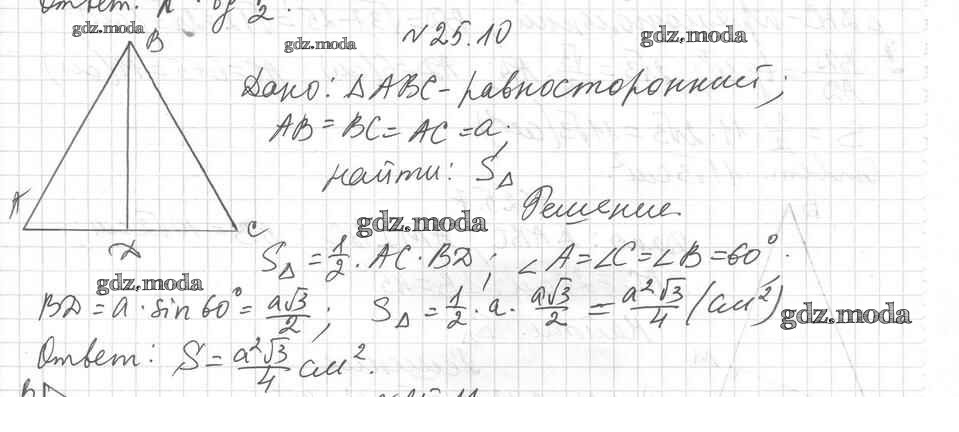 Ответ:
gdz.moda
B
gdz.moda
№ 25.10
gdz.moda
Дано: △ABC - равносторонний;
AB = BC = AC = a;
найти: S△
A
C
D
gdz.moda
Решение
S△ = 1/2 · AC · BD; ∠A = ∠C = ∠B = 60°.
gdz.moda
BD = a · sin 60° = a√3/2; S△ = 1/2 · a · a√3/2 = a²√3/4 (см²)
gdz.moda
Ответ: S = a²√3/4 см².
B